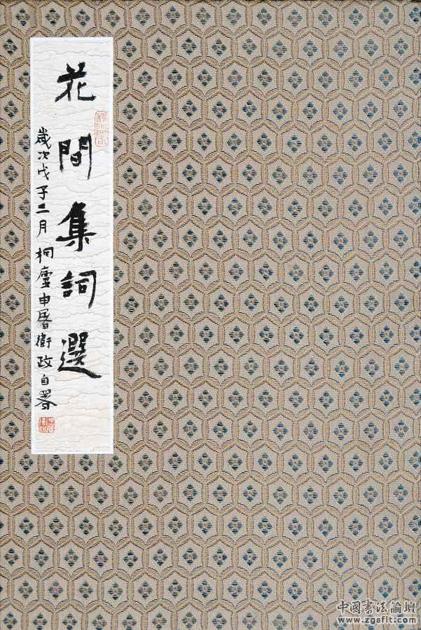 花間集詞選
歲次戊子二月桐廬申屠衛政自署
中國書法論壇
www.zgsflt.com